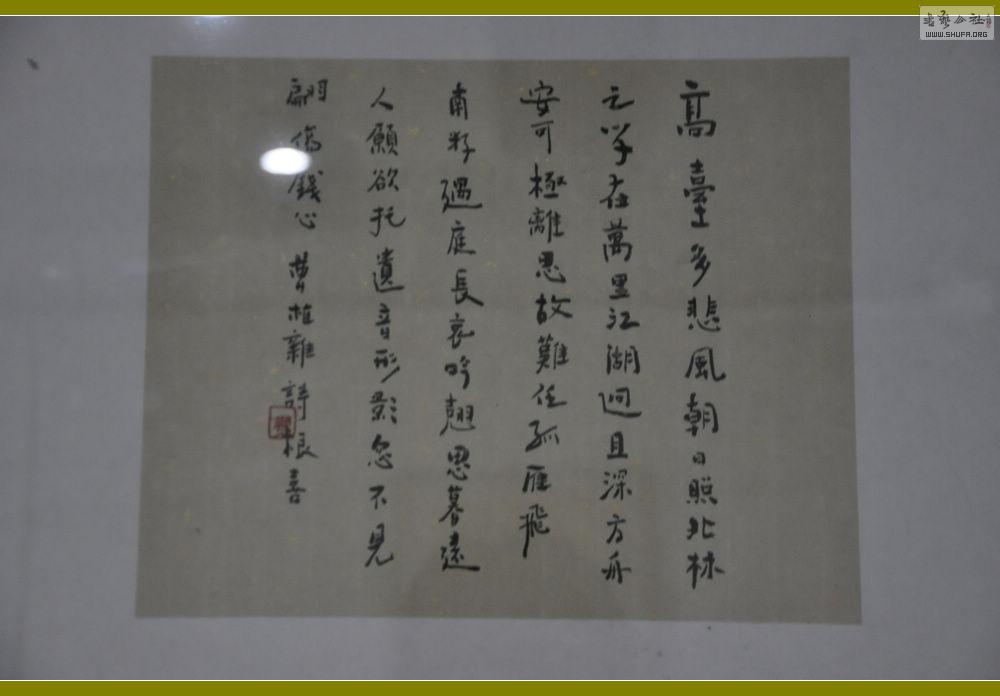 高臺多悲風朝日照北林
之子在萬里江湖迥且深方舟
安可極離思故難任孤雁飛
南游遇庭長哀吟翹思慕遠
人願欲托遺音形影忽不見
翩傷心 曹植雜詩根喜
书艺公社
WWW.SHUFA.ORG